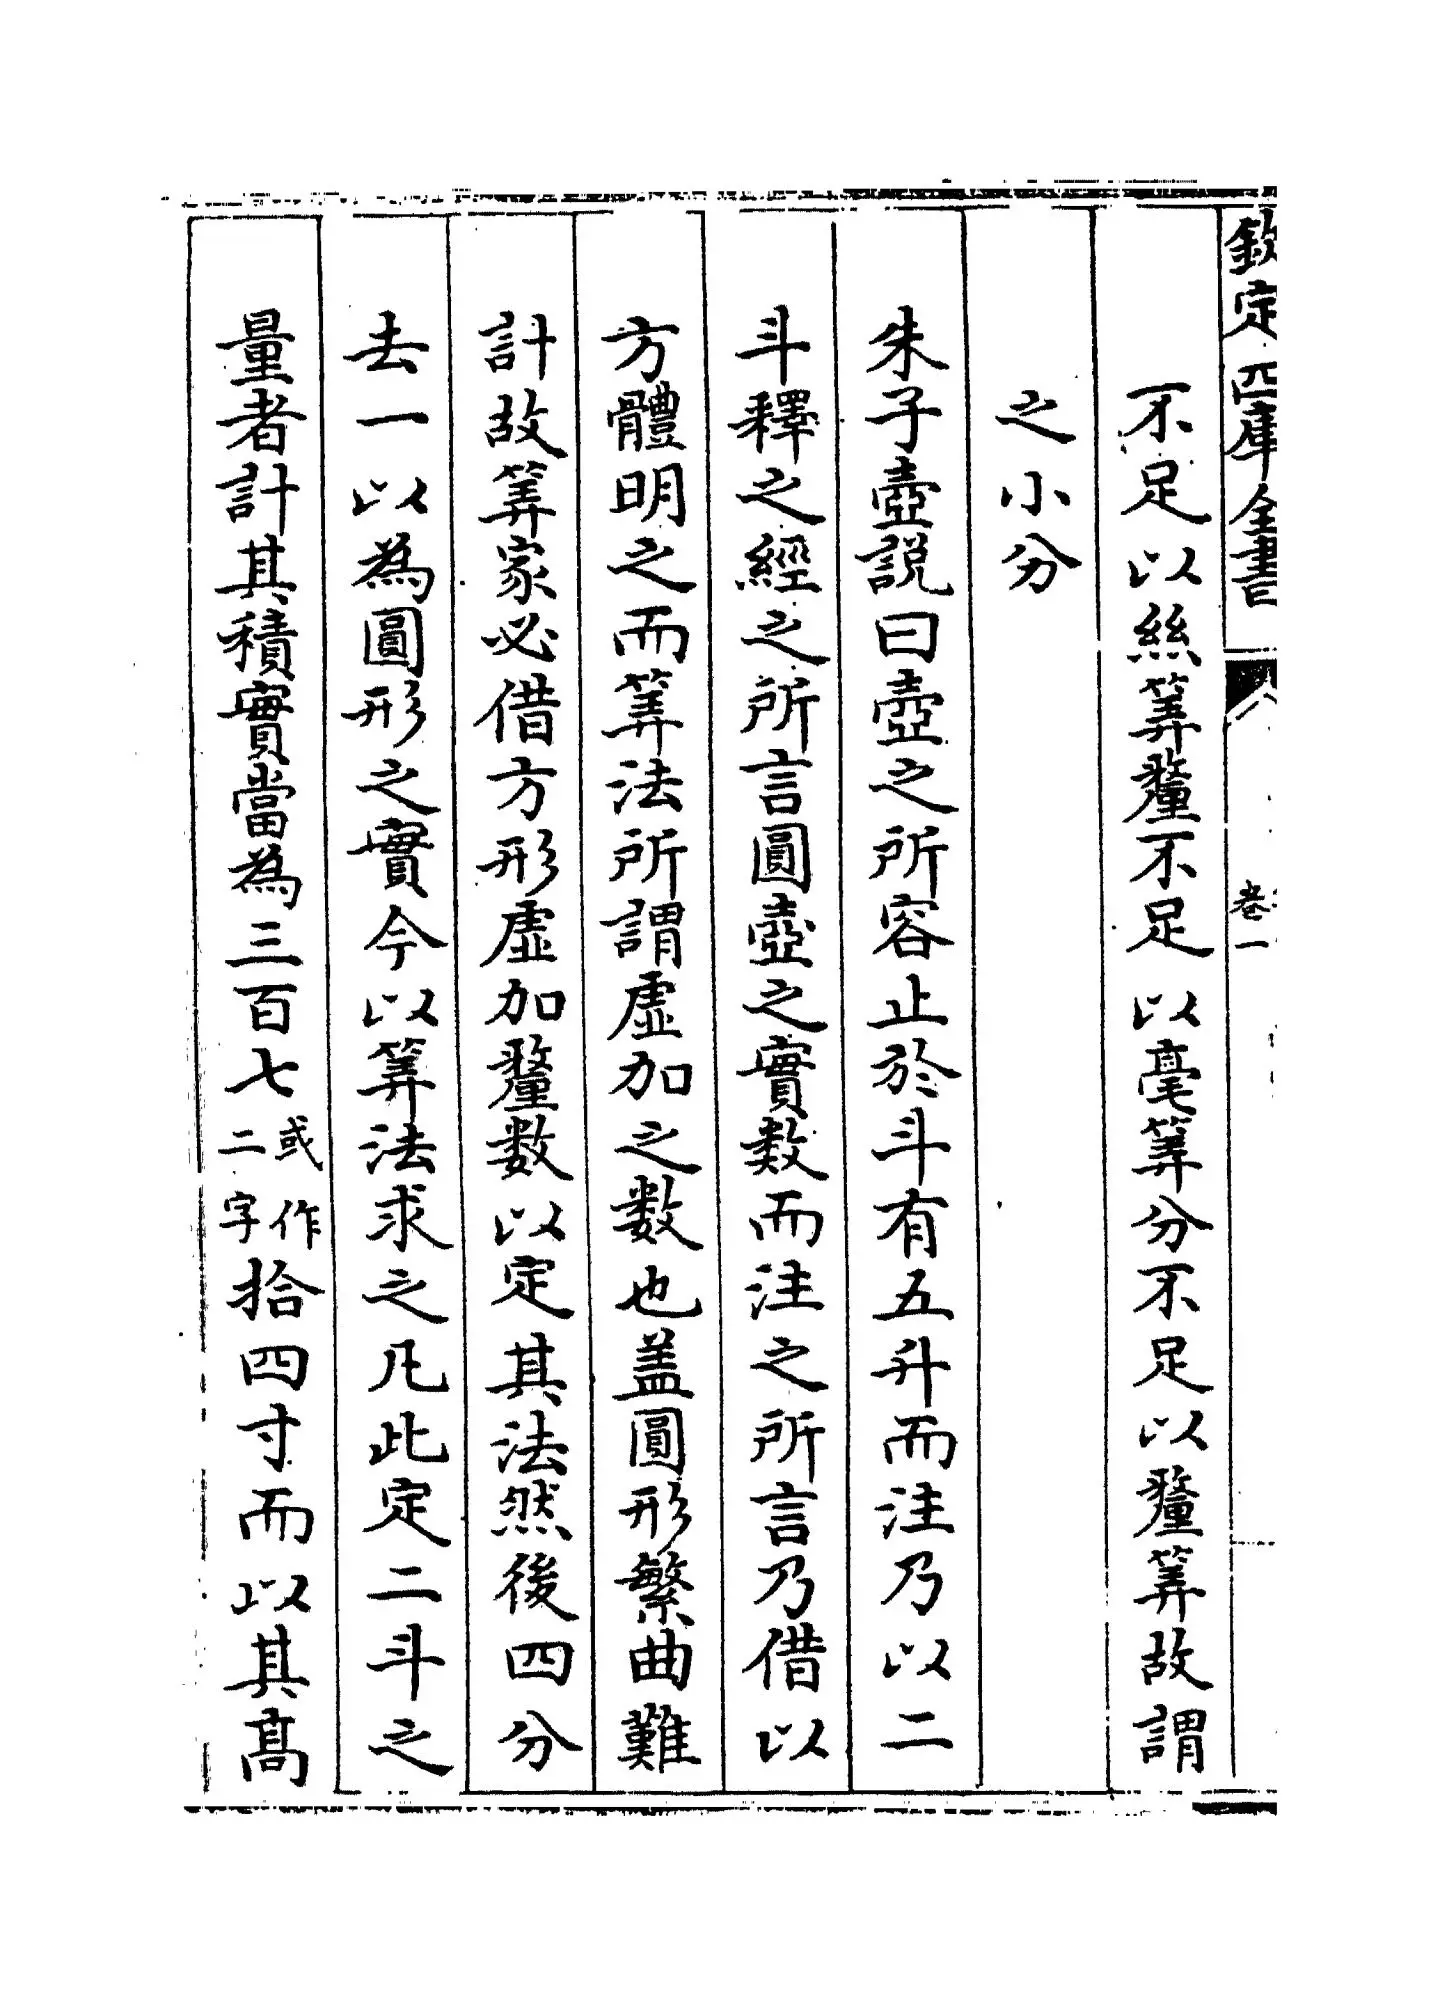 欽定四庫全書
卷一
不足以絲筭釐不足以毫筭分不足以釐筭故謂
之小分
朱子壺説曰壺之所容止於斗有五升而注乃以二
斗釋之經之所言圓壺之實數而注之所言乃借以
方體明之而筭法所謂虛加之數也盖圓形繁曲難
計故筭家必借方形虛加釐數以定其法然後四分
去一以為圓形之實今以筭法求之凡此定二斗之
量者計其積實當為三百七或作二字拾四寸而以其髙